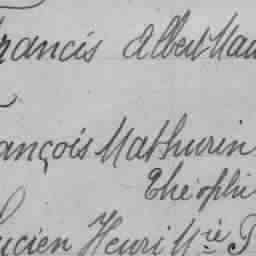 rancis Albert Mau
ançois Mathurin
Théophi
ucien Henri Mie P